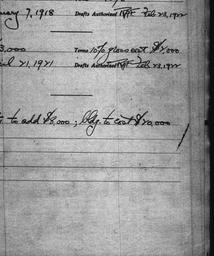 ary 7, 1918 Drafts Authorized Feb 23, 1922
3,000 Terms 10% gross cost $2,000
il 21, 1921 Drafts Authorized Feb 23, 1922
to add $8,000; bldg. to cost $20,000